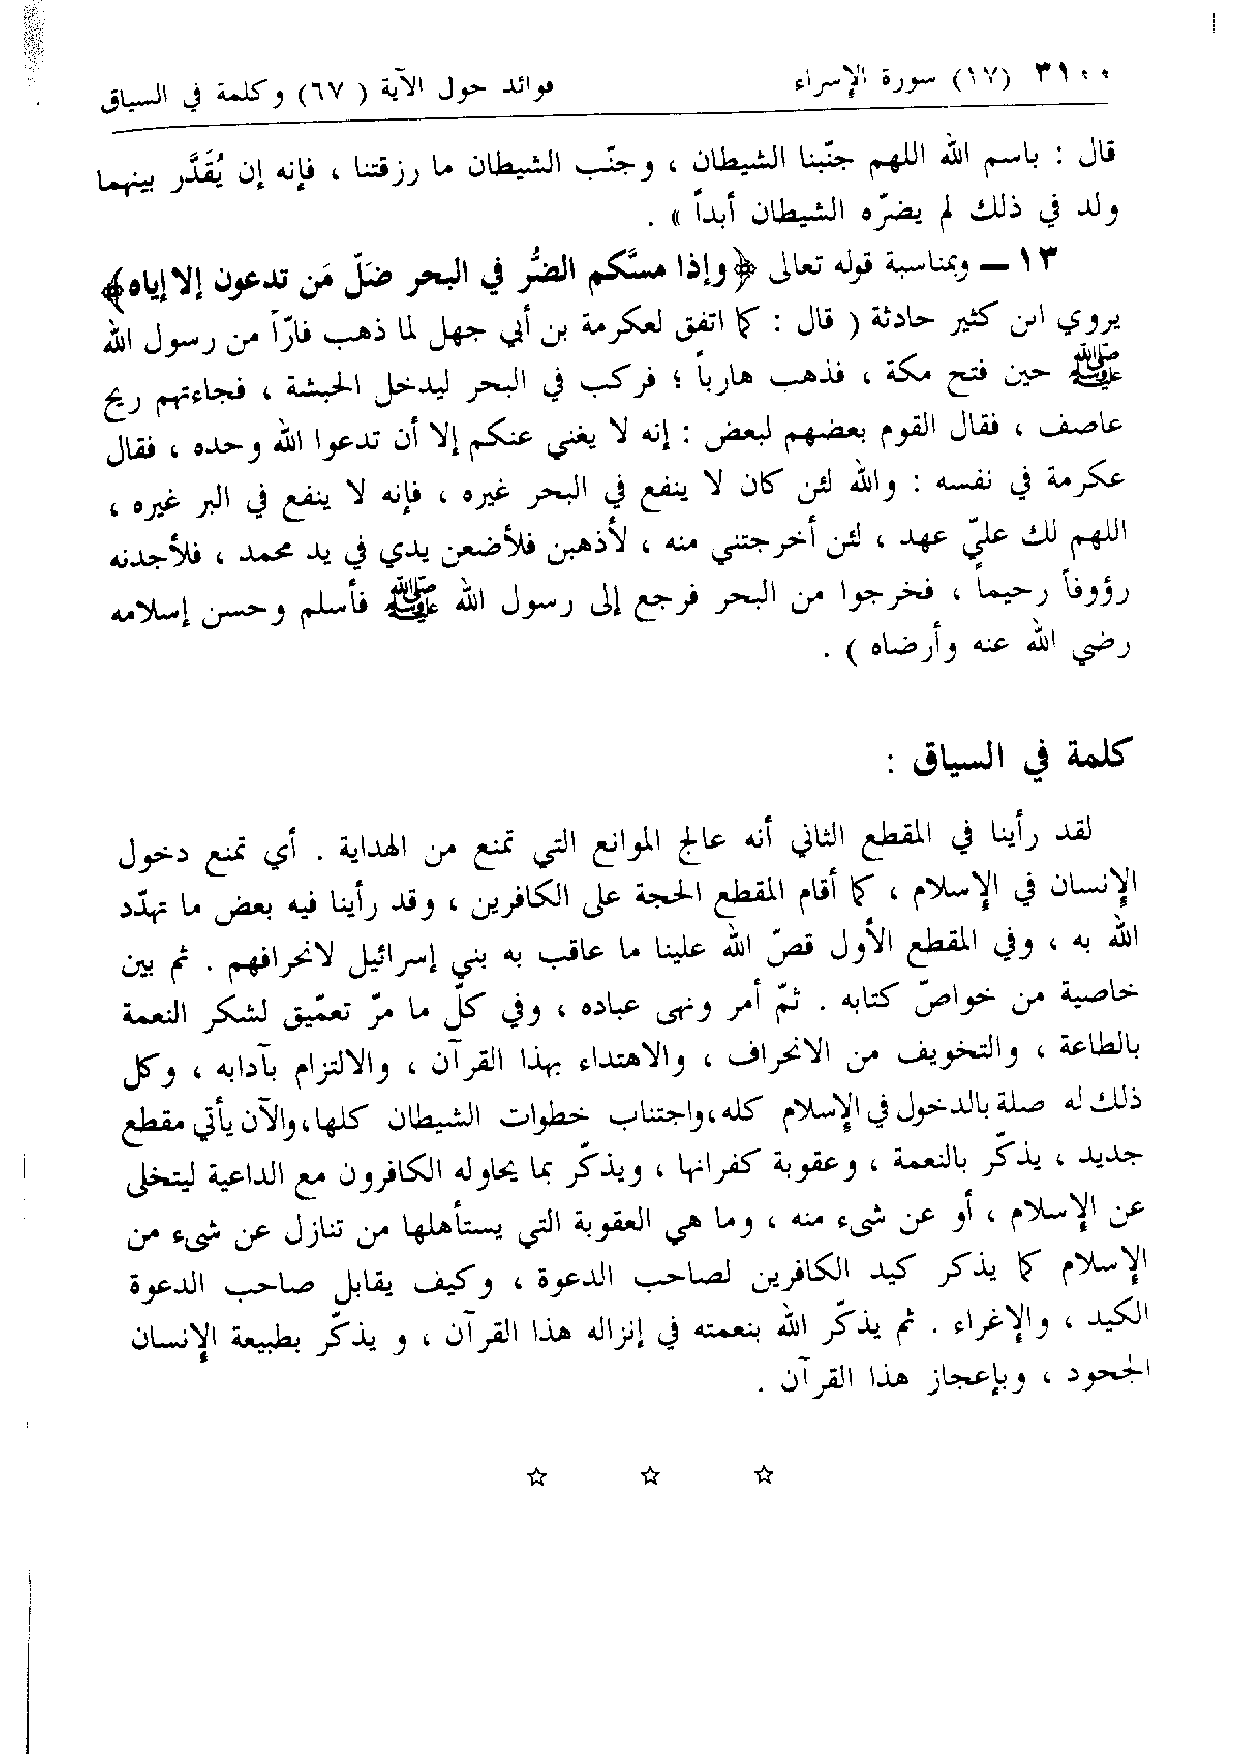 ٣١٠٠ (١٧) سورة الإسراء فوائد حول الآية ( ٦٧ ) وكلمة في السياق
قال : باسم الله اللهم جنّبنا الشيطان ، وجنّب الشيطان ما رزقتنا ، فإنه إن يُقَدَّر بينهما
ولد في ذلك لم يضرّه الشيطان أبداً » .
١٣ ــ وبمناسبة قوله تعالى ﴿وإذا مسَّكم الضرُّ في البحر ضَلّ مَن تدعون إلا إياه﴾
يروي ابن كثير حادثة ( قال : كما اتفق لعكرمة بن أبي جهل لما ذهب فارّاً من رسول الله
ﷺ حين فتح مكة ، فذهب هارباً ؛ فركب في البحر ليدخل الحبشة ، فجاءتهم ريح
عاصف ، فقال القوم بعضهم لبعض : إنه لا يغني عنكم إلا أن تدعوا الله وحده ، فقال
عكرمة في نفسه : والله لئن كان لا ينفع في البحر غيره ، فإنه لا ينفع في البر غيره ،
اللهم لك عليّ عهد ، لئن أخرجتني منه ، لأذهبن فلأضعن يدي في يد محمد ، فلأجدنه
رؤوفاً رحيماً ، فخرجوا من البحر فرجع إلى رسول الله ﷺ فأسلم وحسن إسلامه
رضي الله عنه وأرضاه ) .
كلمة في السياق :
لقد رأينا في المقطع الثاني أنه عالج الموانع التي تمنع من الهداية . أي تمنع دخول
الإنسان في الإسلام ، كما أقام المقطع الحجة على الكافرين ، وقد رأينا فيه بعض ما تهدّد
الله به ، وفي المقطع الأول قصّ الله علينا ما عاقب به بني إسرائيل لانحرافهم . ثم بين
خاصية من خواصّ كتابه . ثمّ أمر ونهى عباده ، وفي كلّ ما مرّ تعمّيق لشكر النعمة
بالطاعة ، والتخويف من الانحراف ، والاهتداء بهذا القرآن ، والالتزام بآدابه ، وكل
ذلك له صلة بالدخول في الإسلام كله،واجتناب خطوات الشيطان كلها،والآن يأتي مقطع
جديد ، يذكّر بالنعمة ، وعقوبة كفرانها ، ويذكّر بما يحاوله الكافرون مع الداعية ليتخلى
عن الإسلام ، أو عن شيء منه ، وما هي العقوبة التي يستأهلها من تنازل عن شيء من
الإسلام كما يذكر كيد الكافرين لصاحب الدعوة ، وكيف يقابل صاحب الدعوة
الكيد ، والإغراء . ثم يذكّر الله بنعمته في إنزاله هذا القرآن ، و يذكّر بطبيعة الإنسان
الجحود ، وبإعجاز هذا القرآن .
☆ ☆ ☆